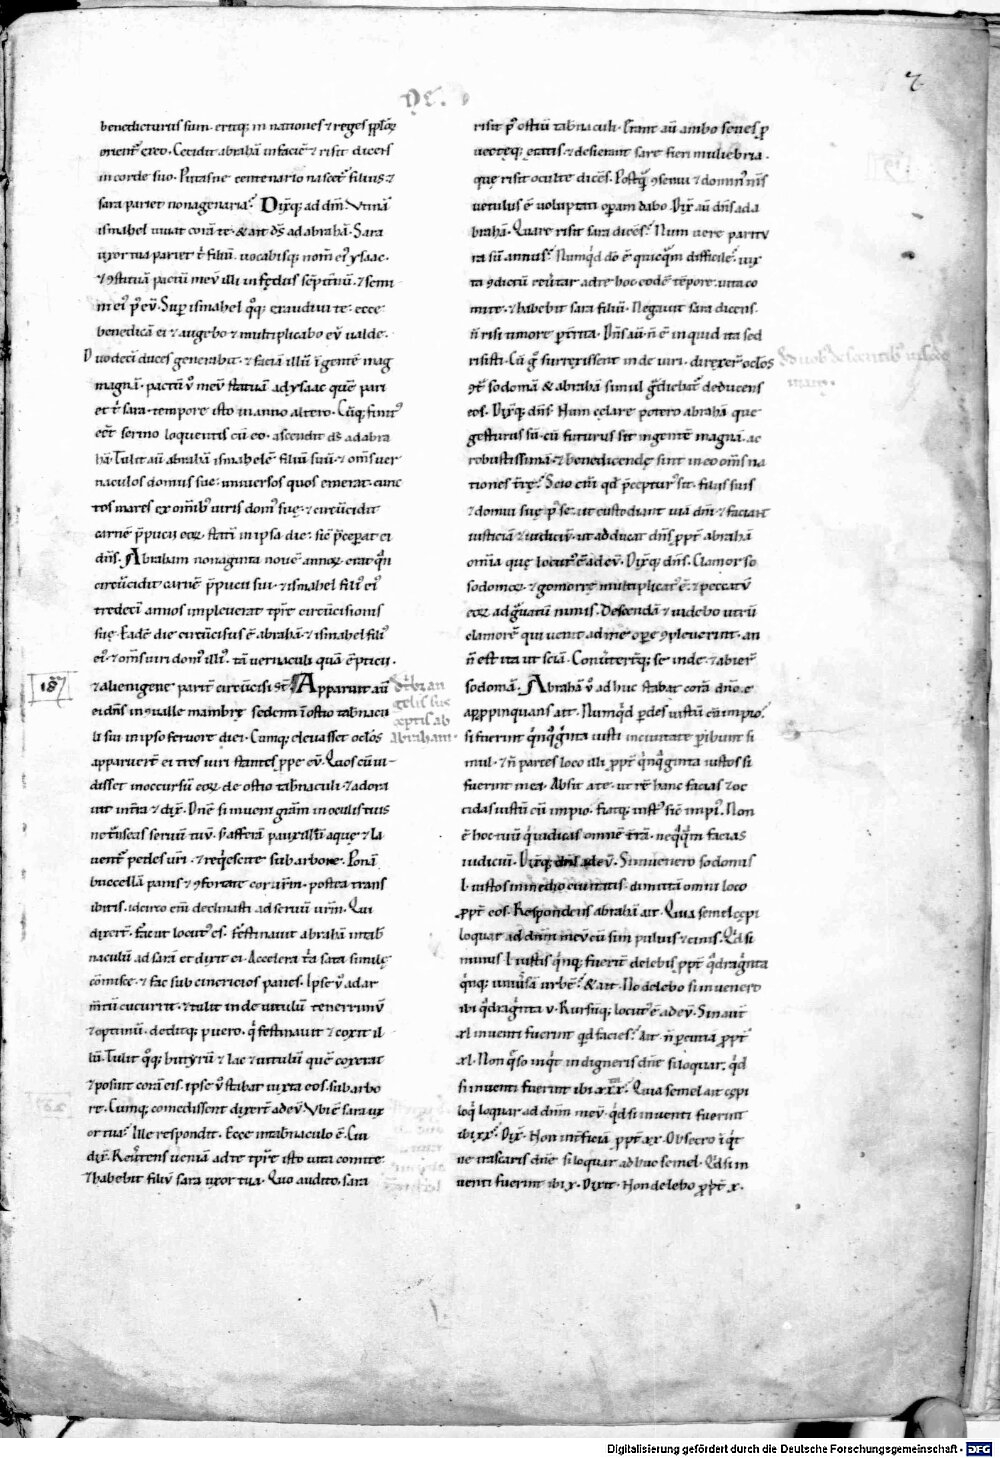 2
benedicturus sum. eritq; in nationes ⁊ reges pp̄loꝝ
orient᷑ ex eo. Cecidit abrahā in faciē ⁊ risit dicens
in corde suo. Putasne centenario nascet᷑ filius. ⁊
sara pariet nonagenaria? Dix̄q; ad dn̄m. Vtinā
ismahel uiuat corā te. & ait ds̄ ad abrahā. Sara
uxor tua pariet t̄ filiū. uocabisq; nom̄ ei᷒ ysaac.
⁊ ꝯstituā pactū meū illi in fędus sēpit̄nū. ⁊ semi
ni ei᷒ p᷒ eū. Suꝑ ismahel qͦq; exaudiui te. ecce
benedicā ei ⁊ augebo ⁊ multiplicabo eū ualde.
Duodecī duces generabit. ⁊ faciā illū ī gentē mag
magnā. pactū ṽ meū statuā ad ysaac quē pari
et t̄ sara. tempore isto in anno altero. Cūq; finit᷒
eēt sermo loquentis cū eo. ascendit ds̄ ab abra
hā. Tulit aū abrahā ismahelē filiū suū. ⁊ om̄s uer
naculos domus sue. uniuersos quos emerat. cunc
tos mares ex om̄ib᷒ uiris dom᷒ suę. ⁊ circūcidit
carnē p̄pucii eoꝝ. statī in ipsa die. sic̄ p̄ceꝑat ei
dn̄s. Abraham nonaginta nouē annoꝝ erat qn̄
circūcidit carnē p̄pucii sui. ⁊ ismahel fili᷒ ei᷒
tredecī annos impleuerat tp̄re circūcisionis
suę. Eadē die circūcisus ē abrahā. ⁊ ismahel fili᷒
ei᷒. ⁊ om̄s uiri dom᷒ illi᷒. tā uernaculi quā ēpticii.
⁊ alienigene parit̄ circūcisi st̄. Apparuit aū
ei dn̄s in ꝯualle mambrę sedenti ī ostio tab̄nacu
li sui in ipso feruore diei. Cumq; eleuasset oclōs
apparuer̄t ei tres uiri stantes ꝓpe eū. Quos cū ui
disset in occursū eoꝝ. de ostio tab̄naculi. ⁊ adora
uit in t̄ra ⁊ dix̄. Dn̄e si inueni grām in oculis tuis
ne t̄nseas seruū tuū. s; afferā pauxillū aquę ⁊ la
uent᷑ pedes uri. ⁊ reqͥescite sub arbore. Ponā
buccellā panis ⁊ ꝯfortate cor ur̄m. postea trans
ibitis. idcirco eni declinasti ad seruū ur̄m. Qui
dixer̄t. fac ut locut᷒ es. Festinauit abrahā in tab̄
naculū ad sarā et dixit ei. Accelera t̄a sata similę
cōmisce. ⁊ fac sub cinericios panes. Ipse ṽ ad ar
m̄tū cucurrit. ⁊ tulit inde uitulū tenerrimū
⁊ optimū. deditq; puero. qͥ festinauit ⁊ coxit il
lū. Tulit qͦq; butyrū ⁊ lac ⁊ uitulū quē coxerat
⁊ posuit corā eis. ipse ṽ stabat iuxta eos. sub arbo
re. Cumq; comedissent dixer̄t ad eū. Vbi ē sara ux
or tua? Ille respondit. Ecce in tab̄naculo ē. Cui
dix̄. Reuͣtens ueniā ad te tp̄re isto uita comite.
⁊ habebit filiū sara uxor tua. Quo audito. sara
187
De trib᷒ an
gelis sus
ceptis ab
abraham.
risit p᷒ ostiū tab̄naculi. Erant aū ambo senes ꝓ
uectęq; etatis. ⁊ desierant sare fieri muliebria.
que risit occulte dicēs. Postqͣ ꝯsenui ⁊ domin᷒ m̄s
uetulus ē uoluptati oꝑam dabo. Dix̄ aū dn̄s ad a
brahā. Quare risit sara dicēs? Num uere paritu
ra sū annus? Numqͥd dō ē quicqͣm difficile? iux
ta ꝯdictū reūtar ad te hoc eodē tēpore. uita co
mite. ⁊ habebit sara filiū. Negauit sara dicens.
n̄ risi timore ꝑt̄rita. Dn̄s aū. n̄ ē inquid ita sed
risisti. Cū g̊ surrexissent inde uiri. direxer̄ oclōs
ꝯt̄ sodomā. & abrahā simul gͣdiebat᷑ deducens
eos. Dix̄q; dn̄s. Num cęlare potero abrahā que
gesturus sū. cū futurus sit in gentē magnā. ac
robustissimā. ⁊ benedicendę sint in eo om̄s na
tiones t̄rę? Scio eni qd̄ p̄ceptur᷒ sit. filiis suis
⁊ domui suę p᷒ se. ut custodiant uiā dn̄i. ⁊ faciant
iusticiā ⁊ iudiciū. ut adducat dn̄s ꝓpt̄ abrahā
om̄ia quę locut᷒ ē ad eū. Dix̄q; dn̄s. Clamor so
sodomoꝝ. ⁊ gomorrę multiplicat᷒ ē. ⁊ peccatū
eoꝝ adgͣuatū nimis. Descendā ⁊ uidebo utrū
clamorē qui uenit ad me oꝑe ꝯpleuerint. an
n̄ est ita ut sciā. Conūter̄tq; se inde. ⁊ abier̄
sodomā. Abrahā ṽ adhuc stabat corā dn̄o. ⁊
apꝓpinquans ait. Numqͥd ꝑdes iustū cū impio?
si fuerint qͥnqͣginta iusti in ciuitate ꝑibunt si
mul. ⁊ n̄ parces loco illi ꝓpt̄ qͥnqͣginta iustos si
fuerint in ea. Absit a te. ut rē hanc facias ⁊ oc
cidas iustū cū impio. fiatq; iust᷒ sic̄ impi᷒. Non
ē hoc tuū qͥ iudicas omnē t̄rā. neqͣqͣm facias
iudiciū. Dix̄q; dn̄s ad eū. Si inuenero sodomis
l. iustos in medio ciuitatis. dimittā omni loco
ꝓpt̄ eos. Respondens abrahā ait. Quia semel cępi
loquar ad dn̄m meū cū sim puluis ⁊ cinis. Qͥd si
minus l. iustis qͥnq; fuerint. delebis ꝓpt̄ qͣdraginta
qͥnq; uniūsā urbē? & ait. No delebo si inuenero
ibi qͣdraginta v. Rursūq; locut᷒ ē ad eū. Sin aūt
xl inuenti fuerint qd facies? Ait. n̄ ꝑcutiā ꝓpt̄
xl. Non qͣso inqͥt indigneris dn̄e si loquar. qͥd
si inuenti fuerint ibi xxx? Quia semel ait cępi
loqͥ loquar ad dn̄m meū. qͥd si inuenti fuerint
ibi xx? Dix̄. Non int̄ficiā ꝓpt̄ xx. Obsecro īqͥt
ne irascaris dn̄e si loquar adhuc semel. Qͥd si in
uenti fuerint ibi x. Dixit. Non delebo ꝓpt̄ x.
Digitalisierung gefördert durch die Deutsche Forschungsgemeinschaft - DFG